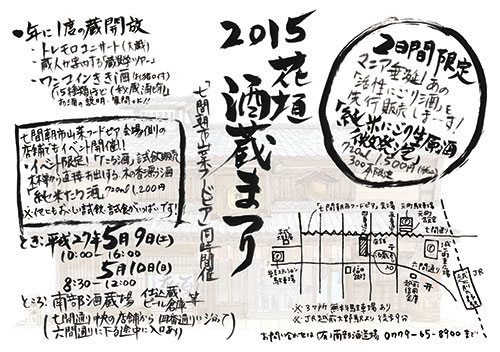 2015
花垣
酒蔵まつり
「七間朝市山菜フードピア」同時開催
・年に1度の蔵開放
・トレモロコンサート(大蔵)
・蔵人が案内する蔵見学ツアー
・ワンコインきき酒
お酒の説明・質問OK!!
2日間限定
マニア垂涎!あの
「活性にごり酒」を
先行販売しまーす!
「純米にごり生原酒
微発泡」
750ml 1,500円(税込)
300本限定
七間朝市山菜フードピア会場側の
店舗でもイベント開催!!
・イベント限定!「たる酒」試飲販売
木樽から直接お出しする木の香漂う酒
「純米たる酒」720ml 1,200円
※他にもおいしい試飲・試食がいっぱいです!
とき:平成27年5月9日(土)
10:00-16:00
5月10日(日)
8:30-12:00
ところ 南部酒造場 仕込蔵 ビール倉庫
(七間通り中央の店舗から
六間通りに下る途中に入口あり)
七間朝市フードピア会場
七間通り
六間通り
越前大野駅
JR
※3ヶ所 無料駐車場あり
※JR越前大野駅より徒歩
お問い合わせは(有)南部酒造場 0779-65-8900まで